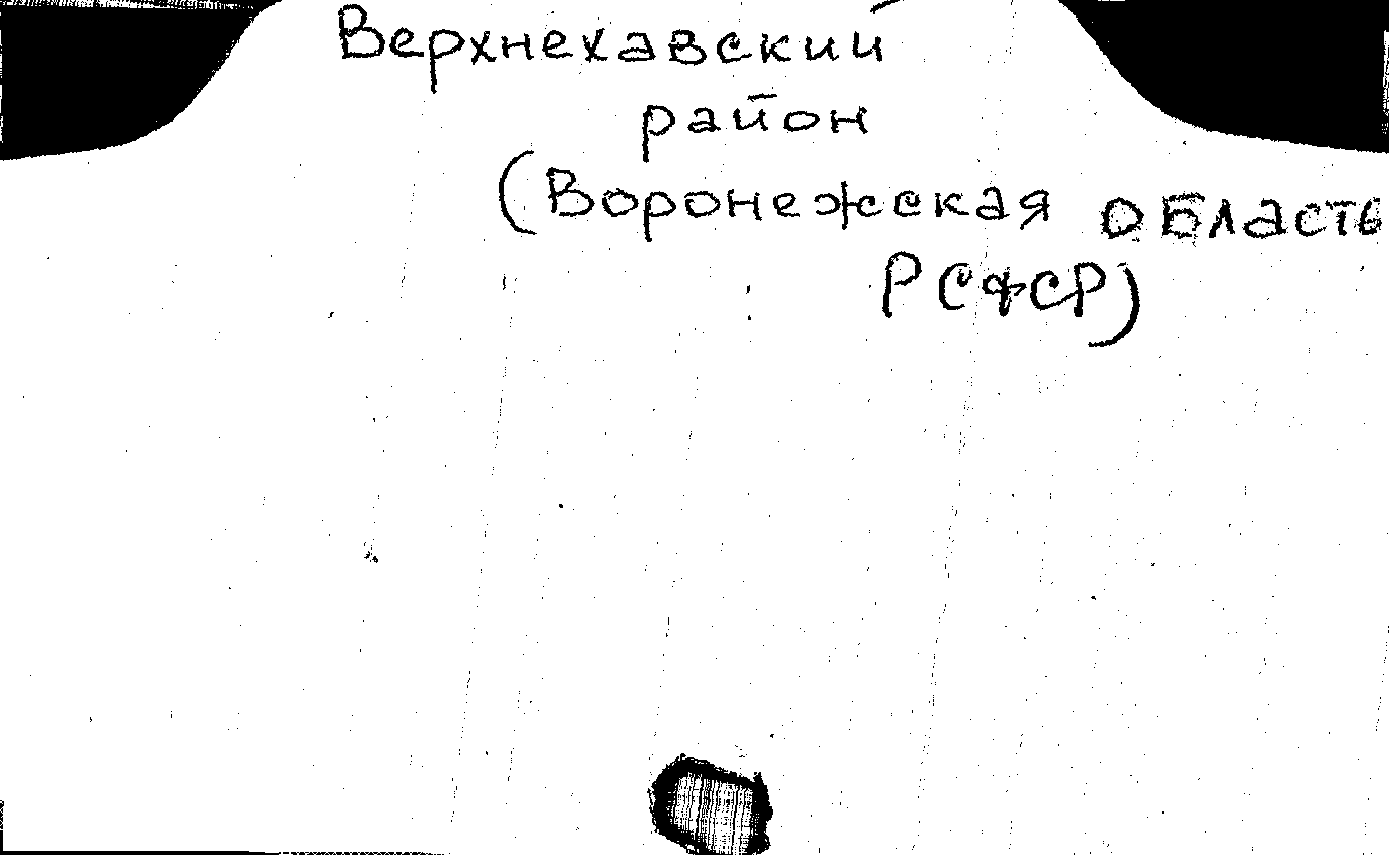 Верхнехавский
район
(Воронежская область
РСФСР)